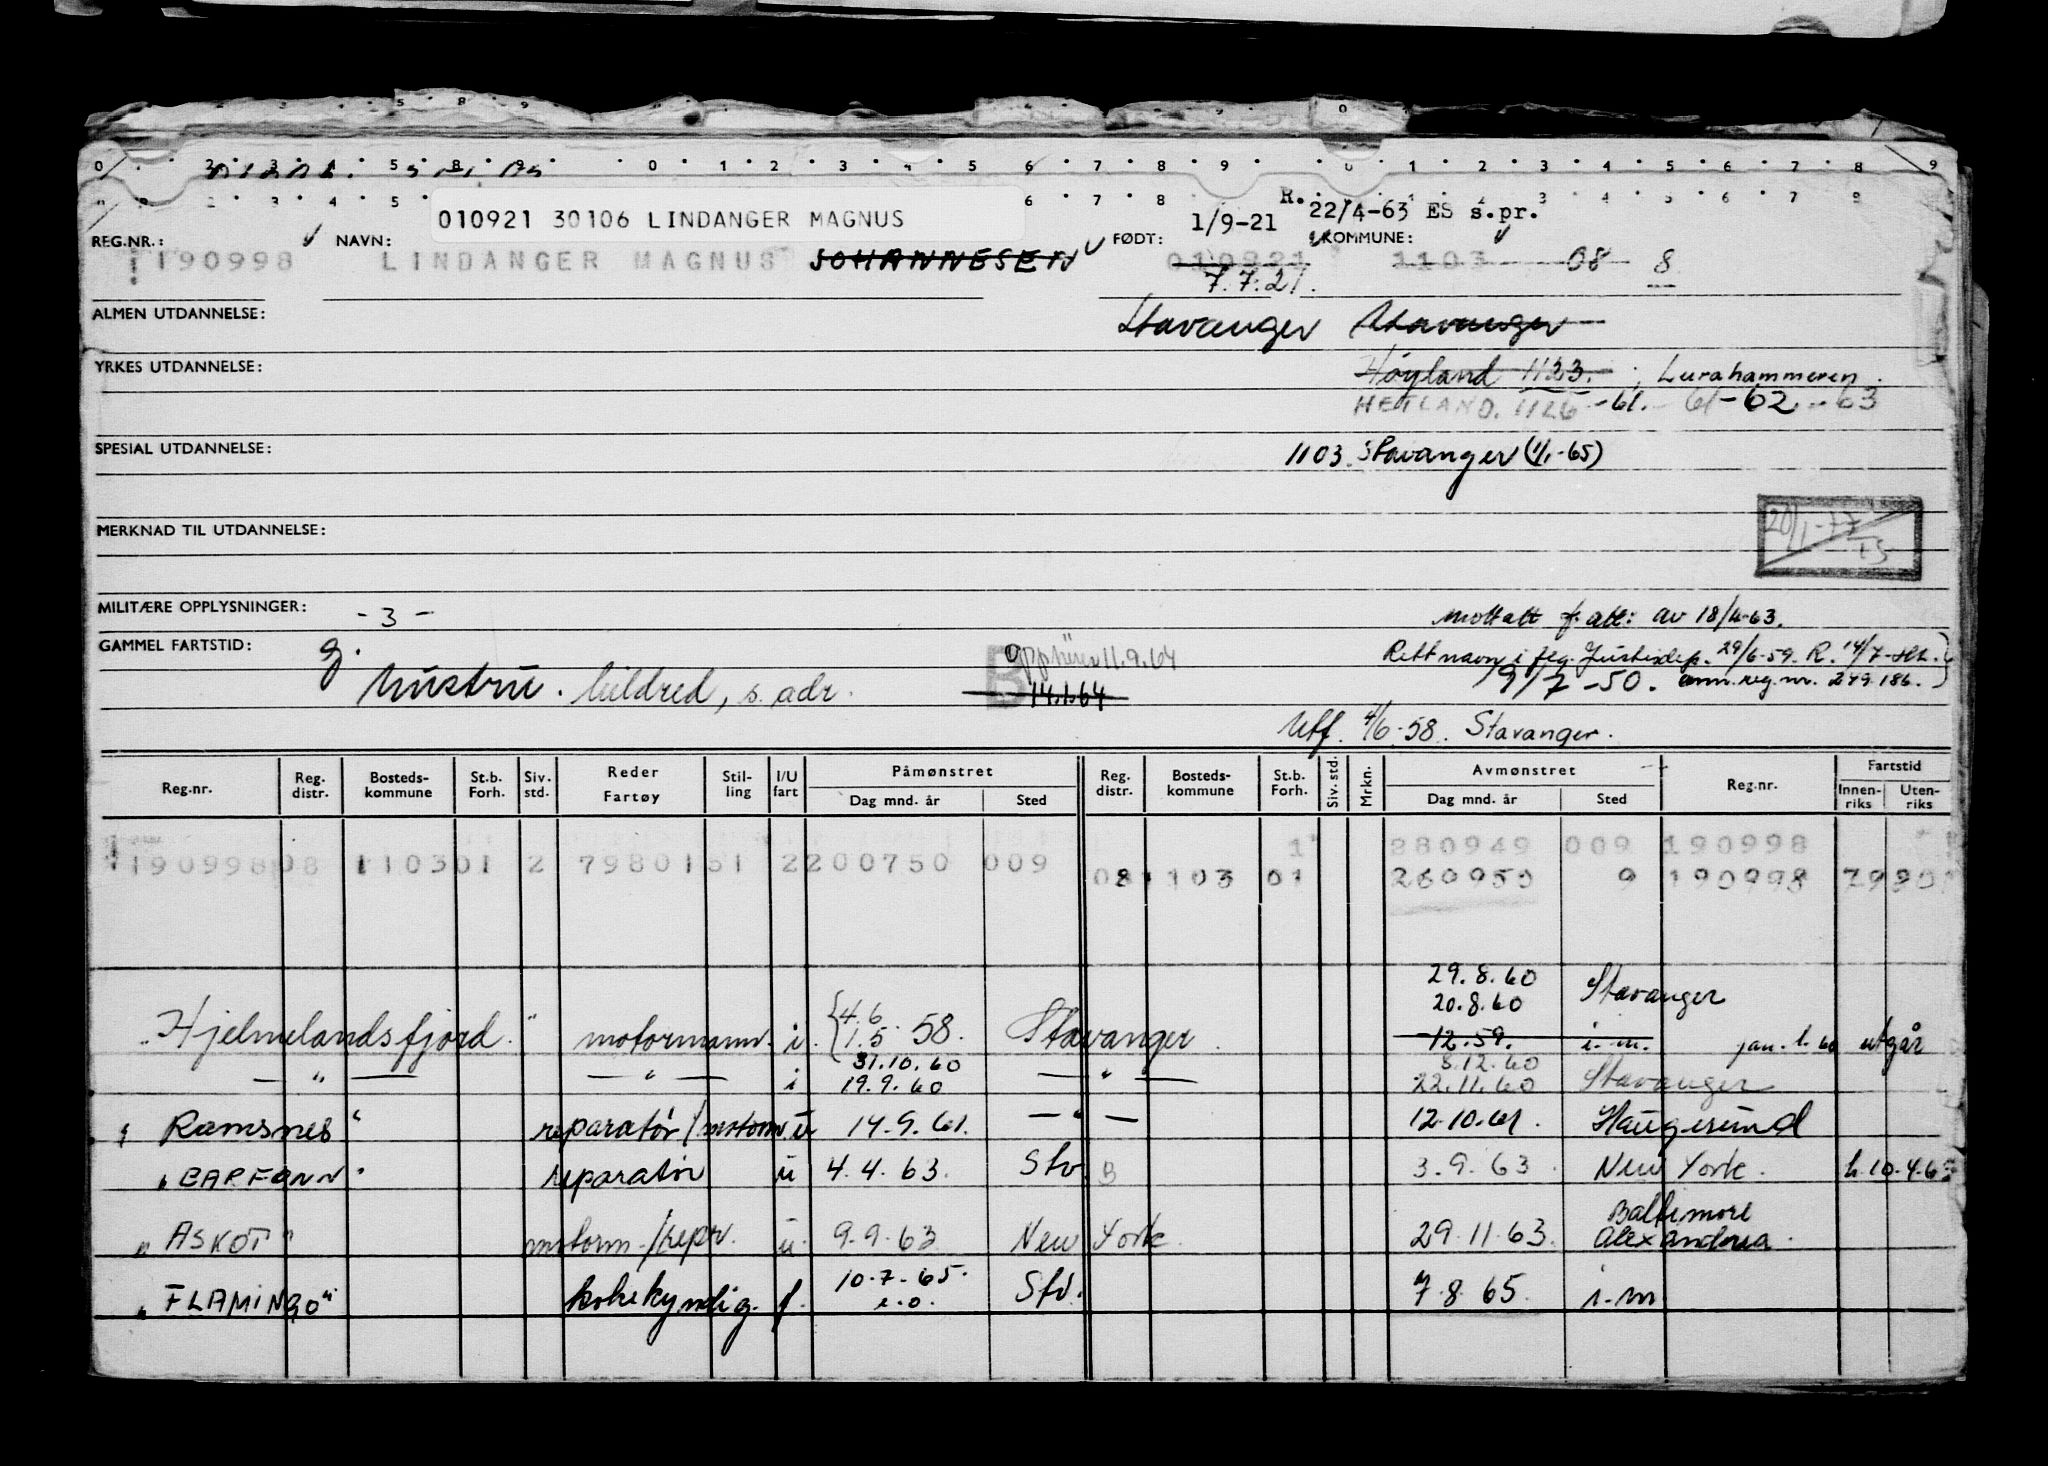 R. 22/4-63 ES s.pr.
010921 30106 LINDANGER MAGNUS
1/9-21
REG.NR.: NAVN: FØDT: KOMMUNE:
190998 LINDANGER MAGNUS JOHANNESEN 010921 1103 08 8
7.7.21.
ALMEN UTDANNELSE: Stavanger Stavanger
YRKES UTDANNELSE: Høyland 1133. Lurahammeren.
HETLAND. 1126 -61. 61-62-63
SPESIAL UTDANNELSE: 1103. Stavanger (1/1-65)
MERKNAD TIL UTDANNELSE: 20/1-77
MILITÆRE OPPLYSNINGER: -3- Mottatt f. att: av 18/4-63.
GAMMEL FARTSTID: g. B Opphever 11.9.64 Rett navn i flg. Justisdep. 29/6-59. R. 14/7-
Hustru. Mildred, s. adr. 14.1.64 9/7-50. ann. reg. nr. 249.186.
Utf. 4/6-58. Stavanger.
Reg.nr. Reg. distr. Bosteds-kommune St.b. Forh. Siv. std. Reder Fartøy Stil-ling I/U fart Påmønstret Dag mnd. år Sted Reg. distr. Bosteds-kommune St.b. Forh. Siv. std. Mrkn. Avmønstret Dag mnd. år Sted Reg.nr. Fartstid Innen-riks Uten-riks
1 280949 009 190998
190998 08 1103 01 2 7980151 2 200750 009 08 1103 01 260950 9 190998
29.8.60
20.8.60 Stavanger
"Hjelmelandsfjord" motormann. i. {4.6 1.5 58. Stavanger. -12.59. i.m. jan. 60 utgår
31.10.60 8.12.60
— " — — " — i 19.9.60 — " — 22.11.60 Stavanger
"Ramsnes" reparatør/motorm u 14.9.61. — " — 12.10.61. Haugesund
" " reparatør u 4.4.63. Stv. B 3.9.63. New York.
"ASKOT" motorm./repr. u. 9.9.63 New York. 29.11.63. Baltimore Alexandria.
"FLAMINGO" kokekyndig. f. 10.7.65. i.o. Stv. 7.8.65. i.m